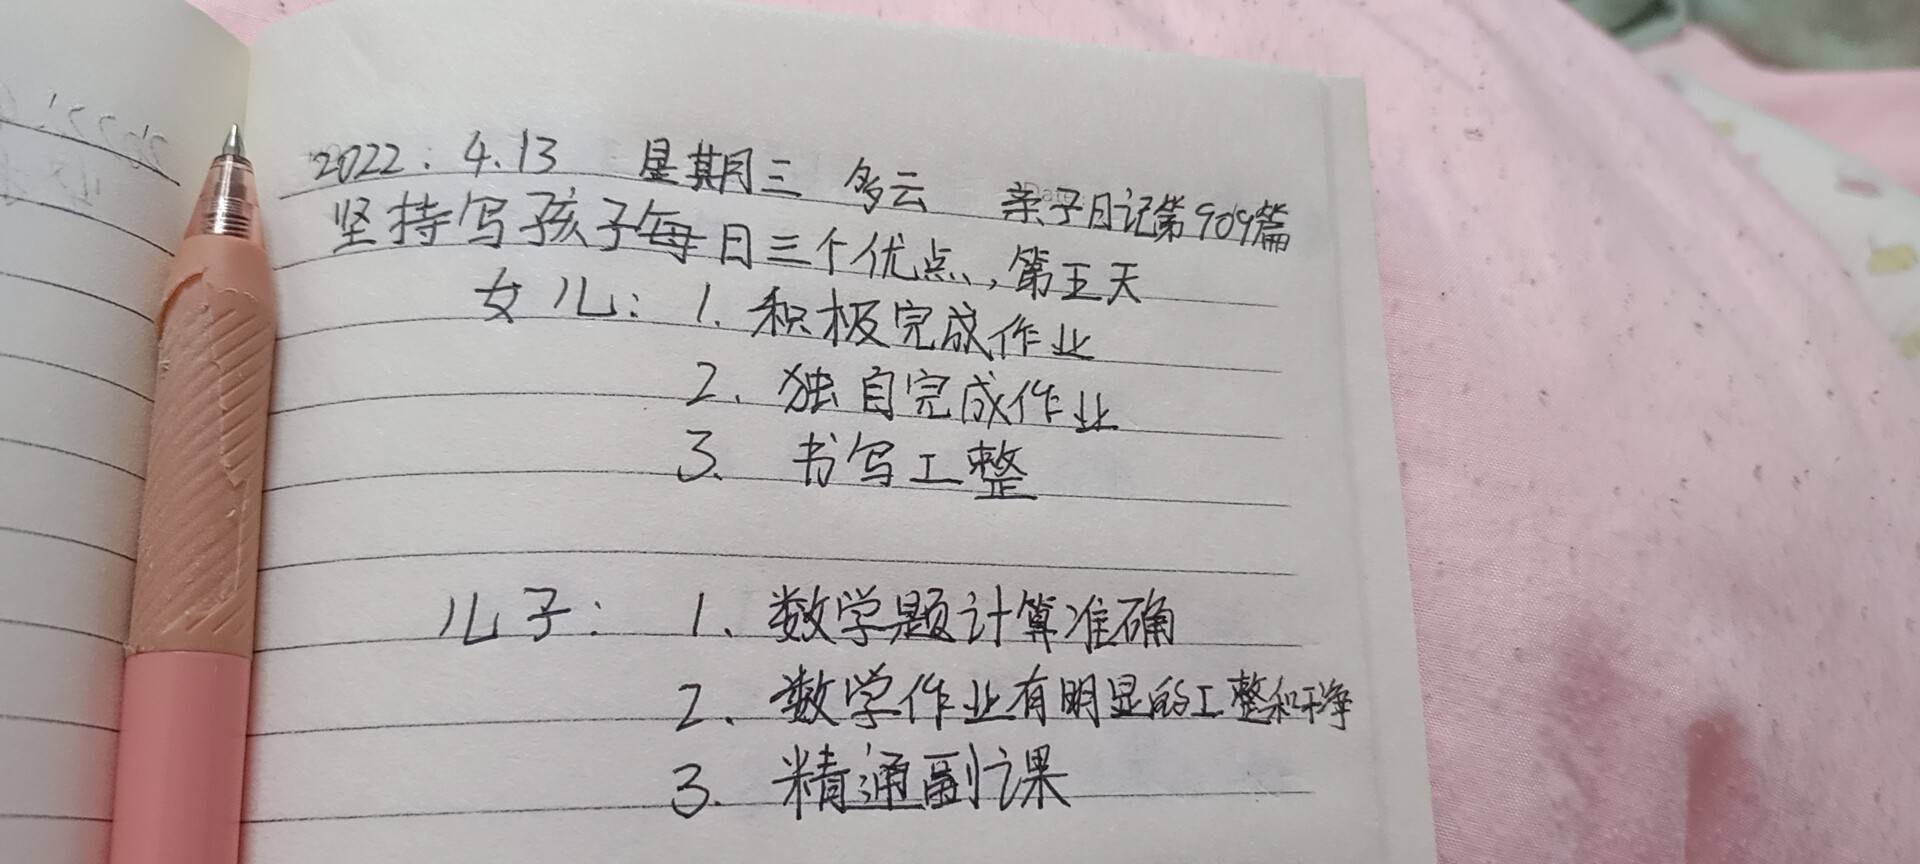 2022.4.13 星期三 多云 亲子日记第909篇
坚持写孩子每日三个优点,第五天
女儿:1.积极完成作业
2.独自完成作业
3.书写工整
儿子:1.数学题计算准确
2.数学作业有明显的工整和干净
3.精通副课